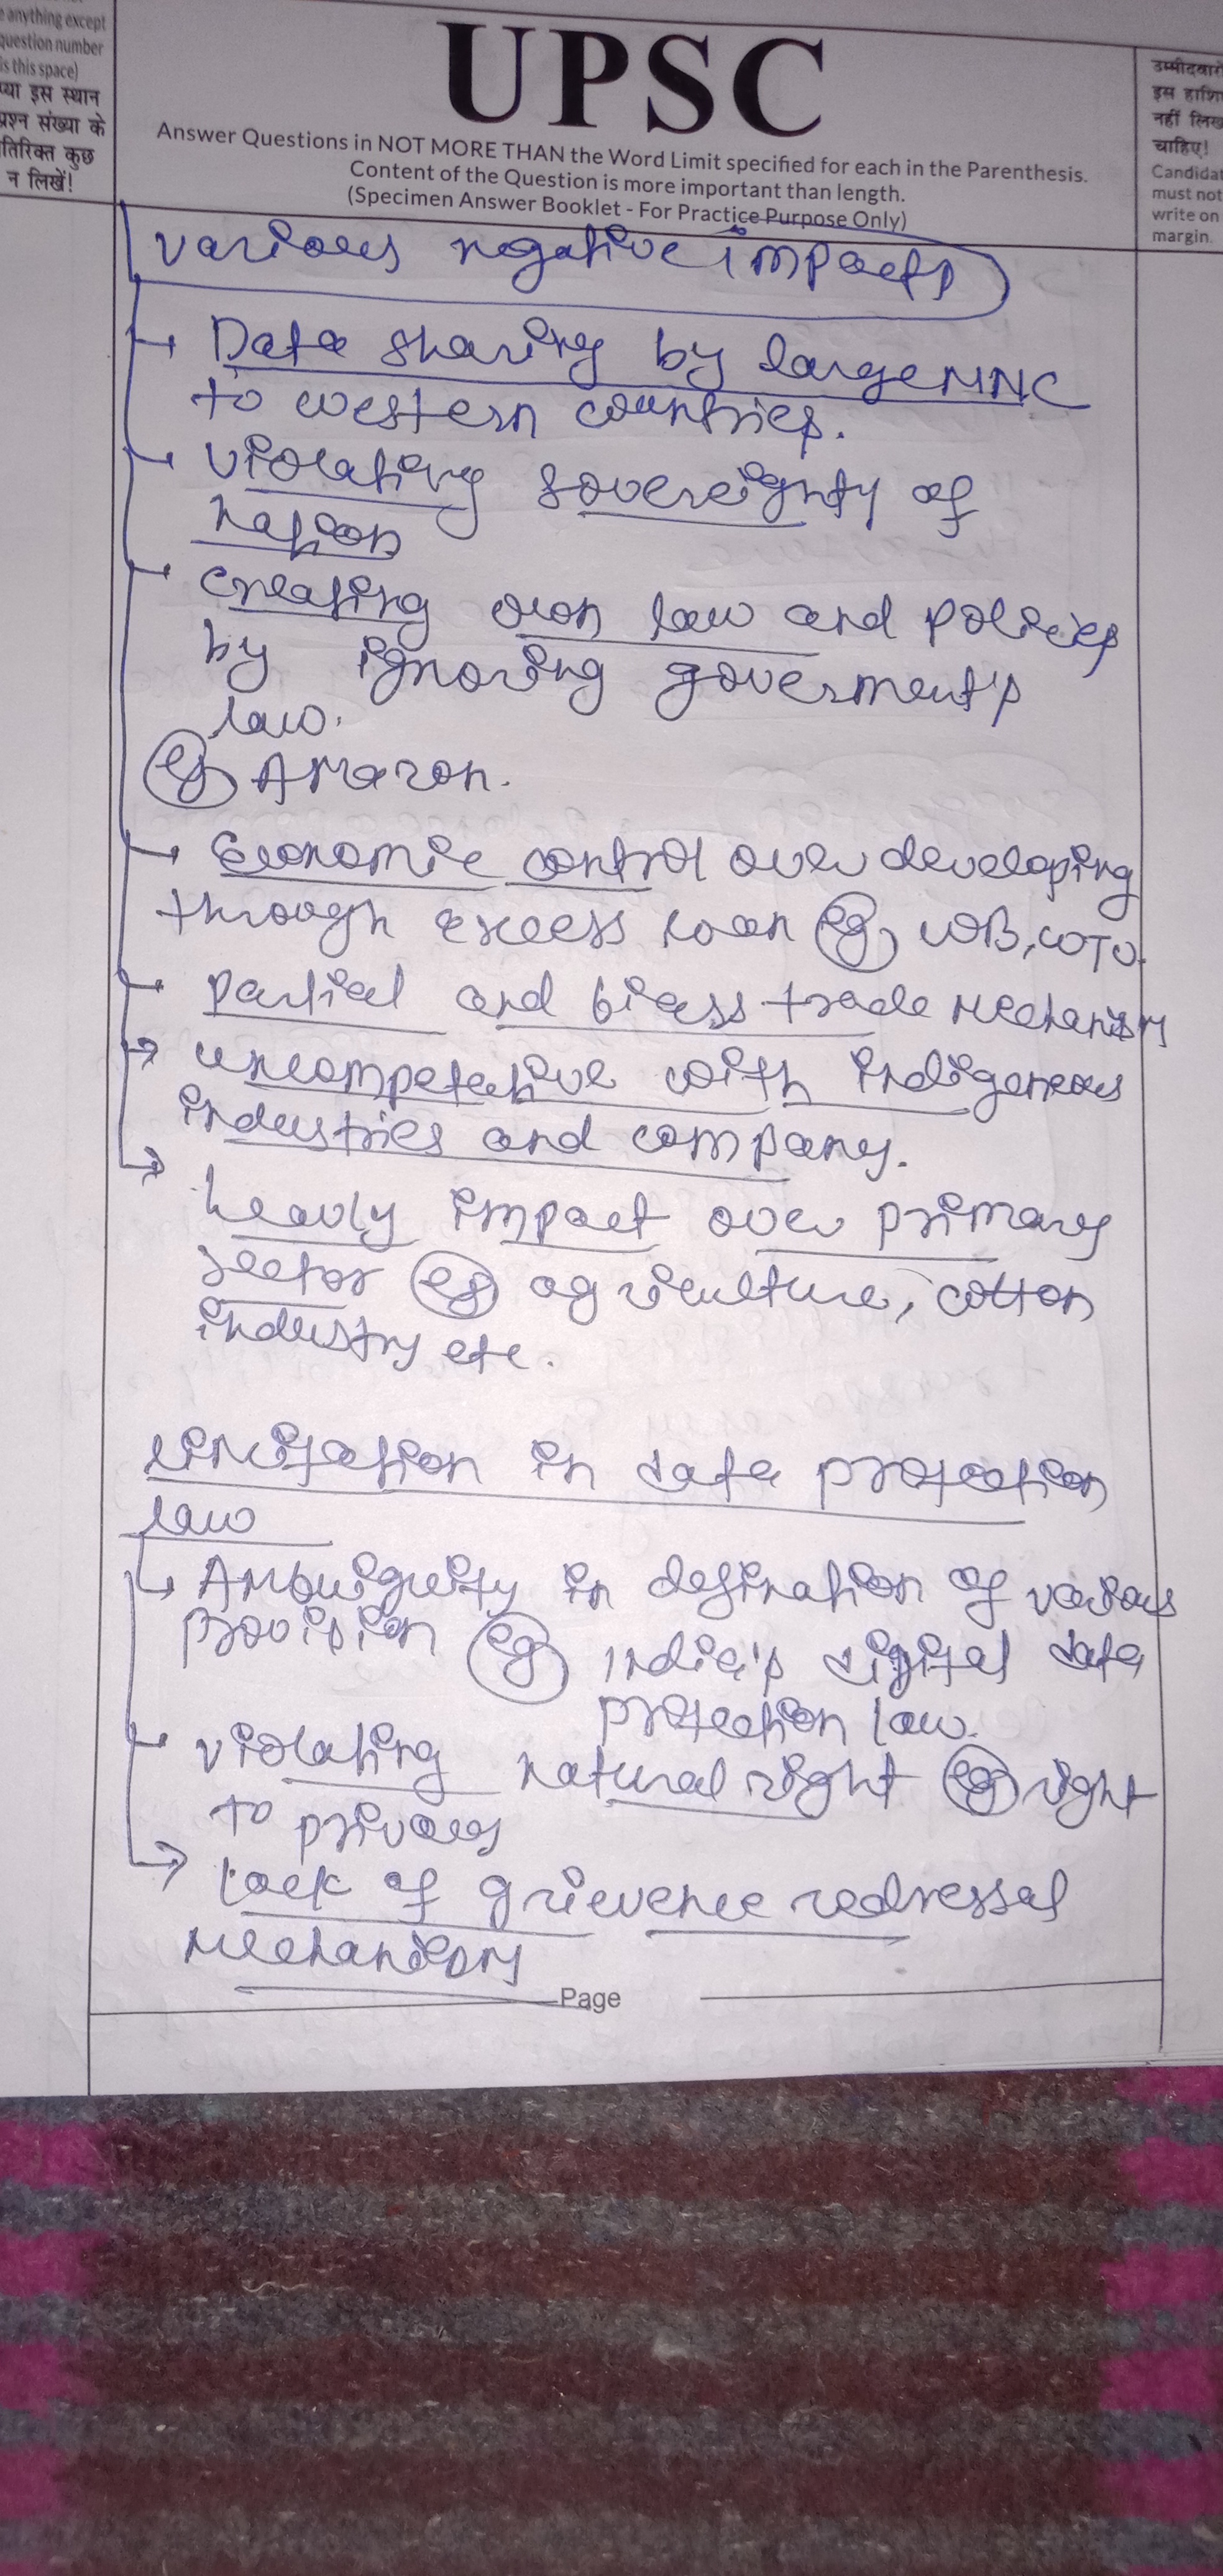 e anything except
question number
is this space)
प्या इस स्थान
प्रश्न संख्या के
तिरिक्त कुछ
न लिखें!
UPSC
Answer Questions in NOT MORE THAN the Word Limit specified for each in the Parenthesis.
Content of the Question is more important than length.
(Specimen Answer Booklet - For Practice Purpose Only)
उम्मीदवारों
इस हाशि
नहीं लिख
चाहिए!
Candidat
must not
write on
margin.
various negative impacts
Data sharing by large MNC
to western countries.
violating sovereignty of
nation
creating own law and policies
by ignoring goverment's
law.
eg Amazon.
Economic control over developing
through excess loan eg WB, WTO.
partial and biass trade mechanism
uncompetative with indigeneous
industries and company.
heavly impact over primary
sector eg agriculture, cotton
industry etc.
limitation in data protection
law
Ambuiguity in defination of various
provision eg India's digital data
protection law.
violating natural right eg right
to privacy
lack of grievence redressal
mechanism
Page